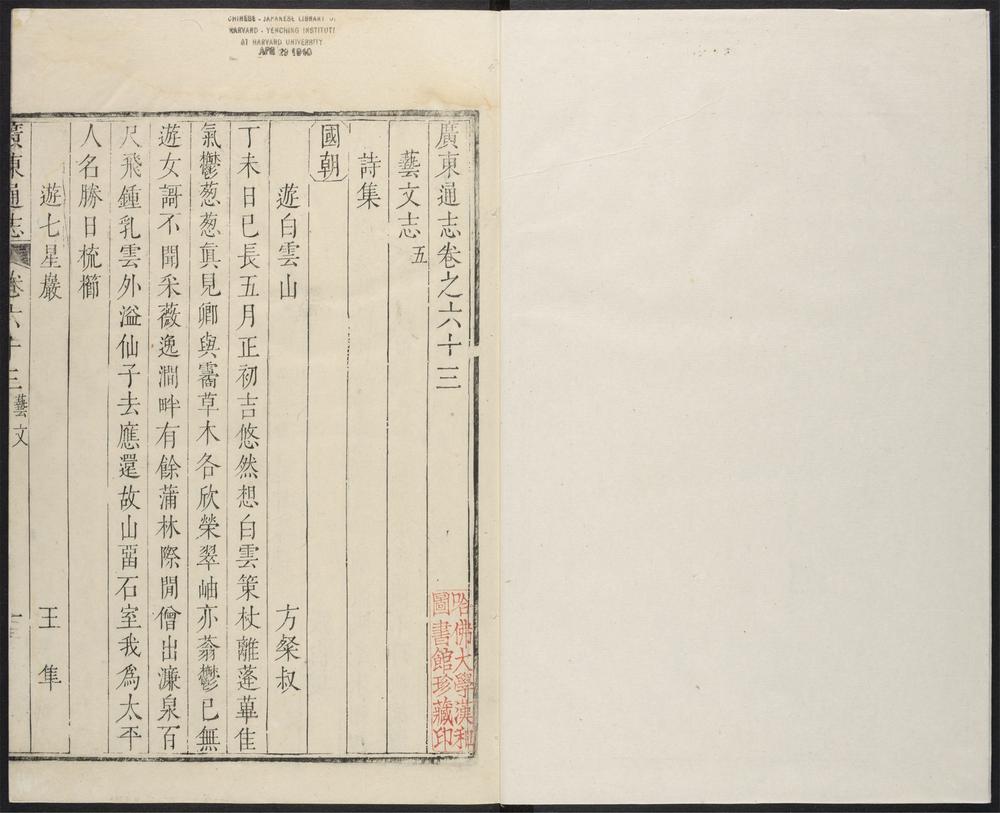 CHINESE - JAPANESE LIBRARY OF
HARVARD - YENCHING INSTITUTE
AT HARVARD UNIVERSITY
APR 29 1940
廣東通志卷之六十三
藝文志五
詩集
國朝
遊白雲山 方粲叔
丁未日已長五月正初吉悠然想白雲策杖離蓬蓽佳
氣鬱葱葱眞見卿與霱草木各欣榮翠岫亦蓊鬱已無
遊女謌不聞采薇逸澗畔有餘蒲林際閒僧出濂泉百
尺飛鍾乳雲外溢仙子去應還故山畱石室我爲太平
人名勝日梳櫛
遊七星巖 王隼
廣東通志 卷六十三 藝文 一
哈佛大學漢和
圖書館珍藏印